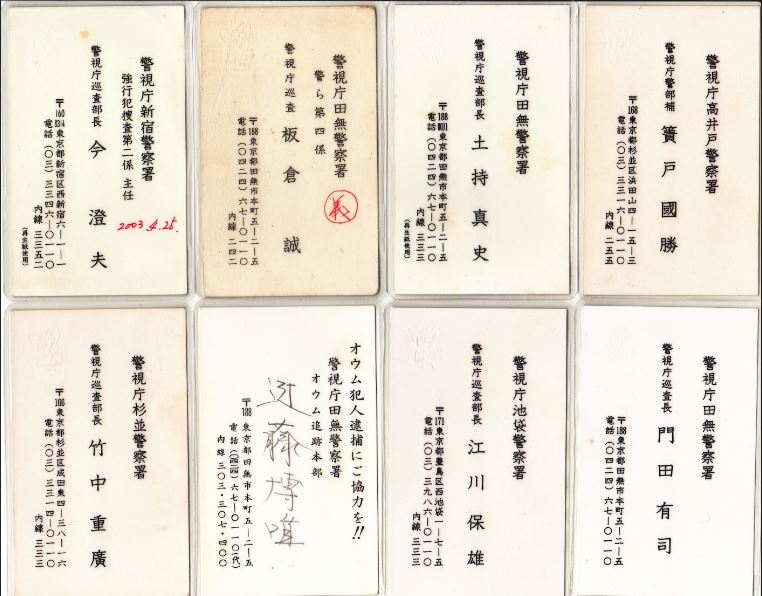 警視庁新宿警察署
強行犯捜査第二係 主任
警視庁巡査部長 今 澄夫
2003.4.25.
東京都新宿区西新宿六ー一ー一
電話(〇三)三三四六ー〇一一〇
内線 三三五二
(再生紙使用)
警視庁田無警察署
警ら第四係
警視庁巡査 板倉 誠
義
〒188 東京都田無市本町五ー二ー五
電話(〇四二四)六七ー〇一一〇
内線 二四二
警視庁田無警察署
警視庁巡査部長 土持真史
東京都田無市本町五ー二ー五
電話(〇四二四)六七ー〇一一〇
内線 三三三
(再生紙使用)
警視庁高井戸警察署
警視庁警部補 簀戸國勝
〒168 東京都杉並区浜田山四ー一五ー三
電話(〇三)三三一六ー〇一一〇
内線 二五五
警視庁杉並警察署
警視庁巡査部長 竹中重廣
〒166 東京都杉並区成田東四ー三八ー一六
電話(〇三)三三一四ー〇一一〇
内線 三三三
オウム犯人逮捕にご協力を!!
警視庁田無警察署
オウム追跡本部
近藤博
〒188 東京都田無市本町五ー二ー五
電話(〇四二四)六七ー〇一一〇(代)
内線 三〇三・三〇七・四〇〇
警視庁池袋警察署
警視庁巡査部長 江川保雄
〒171 東京都豊島区西池袋一ー七ー五
電話(〇三)三九八六ー〇一一〇
内線 三三三
警視庁田無警察署
警視庁巡査部長 門田有司
〒188 東京都田無市本町五ー二ー五
電話(〇四二四)六七ー〇一一〇